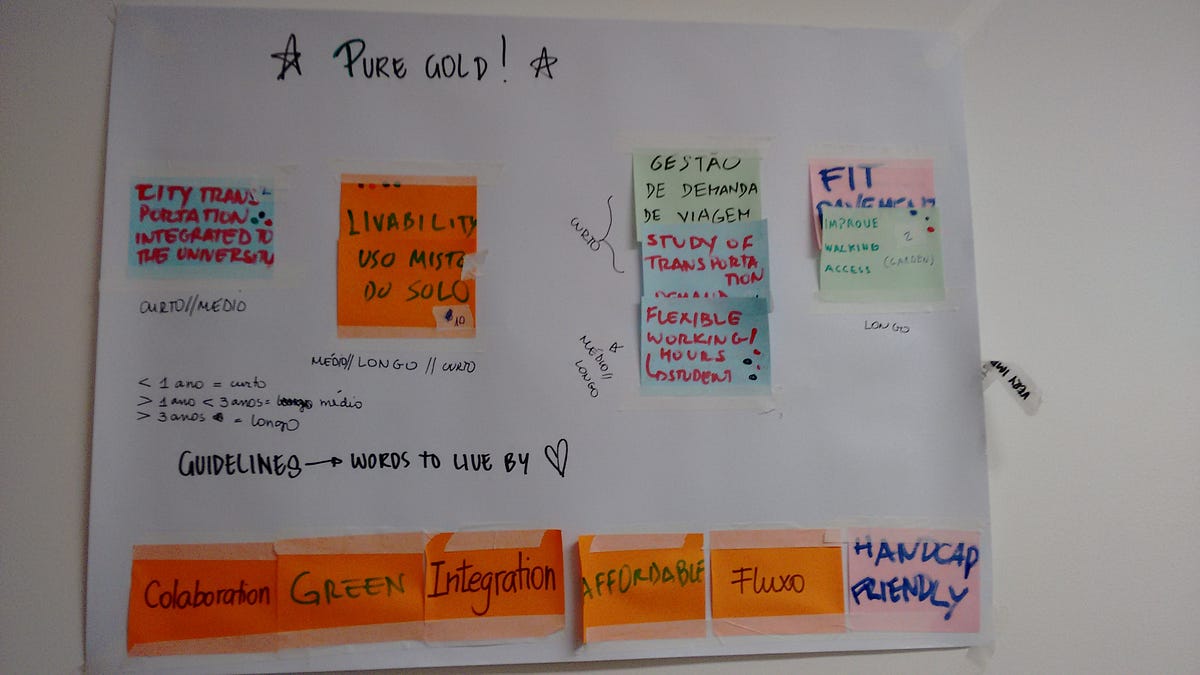 ☆ PURE GOLD! ☆
CITY TRANS
PORTATION
INTEGRATED TO
THE UNIVERSITY
CURTO//MÉDIO
LIVABILITY
USO MISTO
DO SOLO
$10
MÉDIO//LONGO // CURTO
GESTÃO
DE DEMANDA
DE VIAGEM
CURTO
STUDY OF
TRANSPORTA
TION
DEMAND
FLEXIBLE
WORKING/
HOURS
STUDENT
☆ MÉDIO//
LONGO
FIT
PAVEMENT
IMPROVE
WALKING
ACCESS
2
(GARDEN)
LONGO
VERY IMP
< 1 ano = curto
> 1 ano < 3 anos = médio
> 3 anos = longo
GUIDELINES → WORDS TO LIVE BY ♡
Colaboration
GREEN
Integration
AFFORDABLE
Fluxo
HANDCAP
FRIENDLY